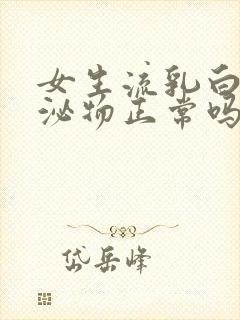 女生流乳白
泌物正常吗
岱岳峰